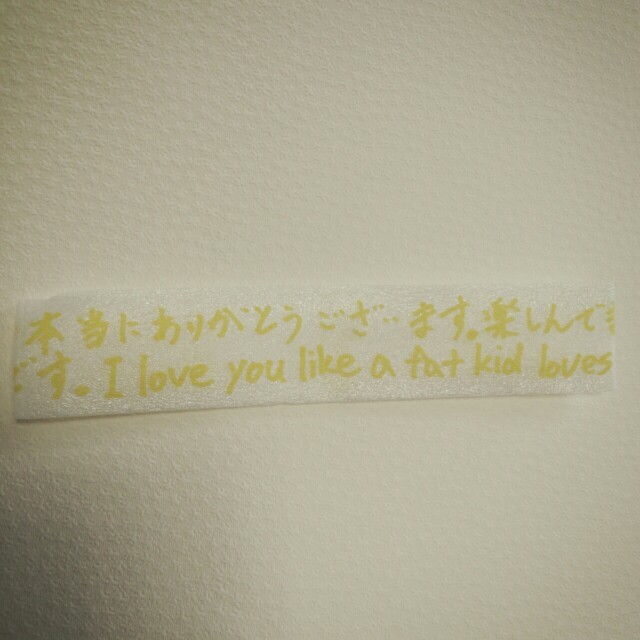 本当にありがとうございます。楽しんで
です。I love you like a fat kid loves